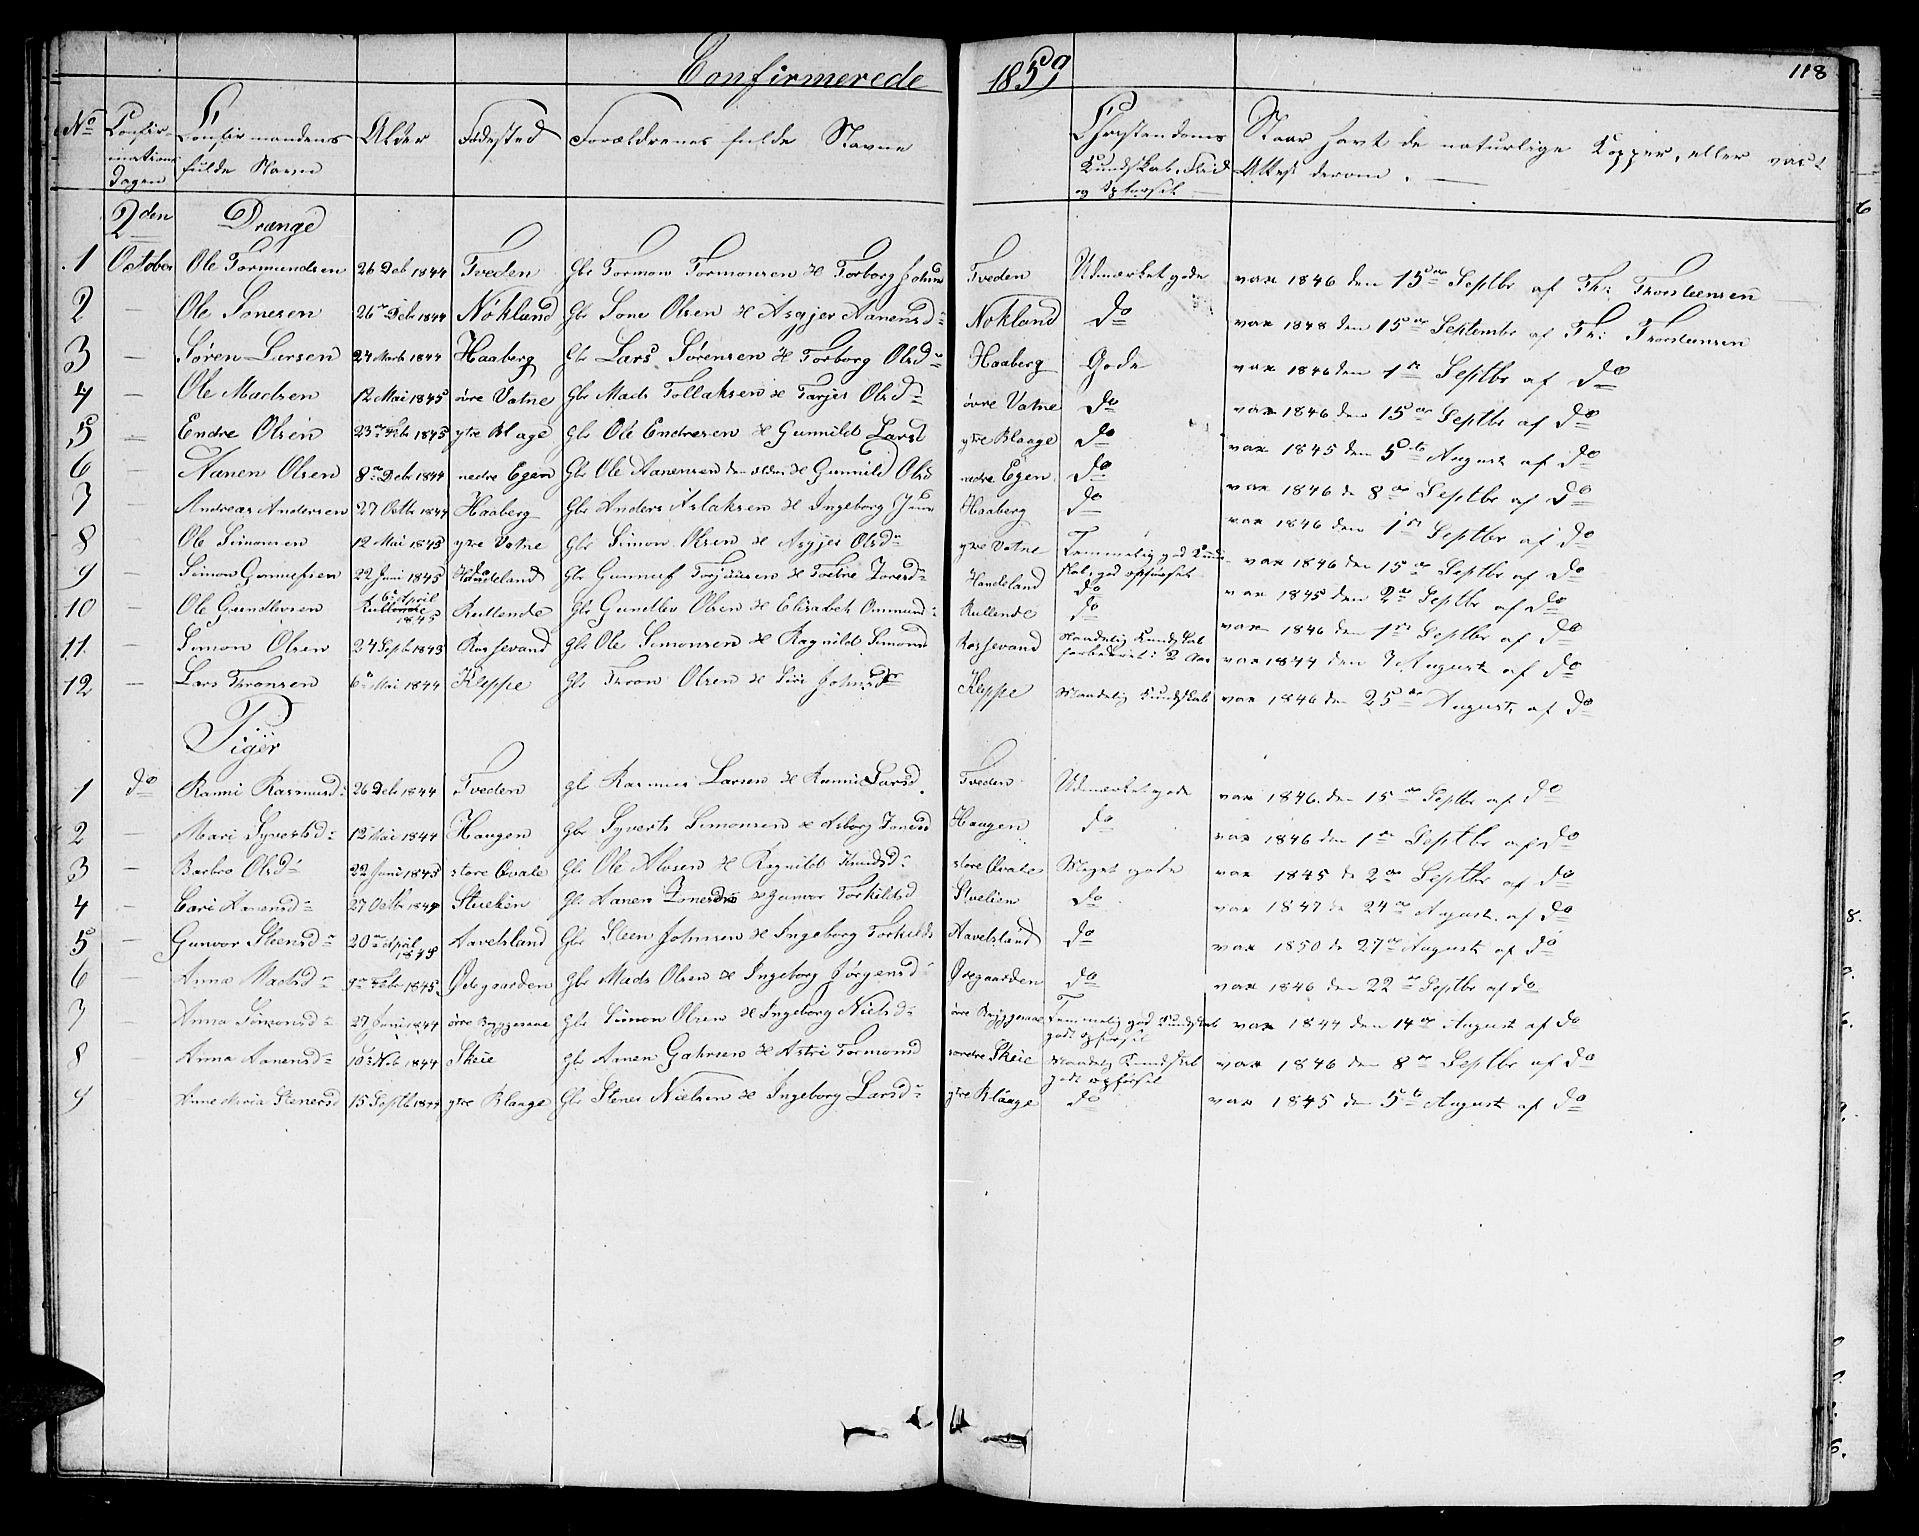 Confirmerede 1859 118
No Confirmationsdagen Confirmandens fulde Navn Alder Fødested Forældrenes fulde Navne Kundskab, Flid og Opførsel Naar havt de naturlige Kopper, eller vacc Attest derom.
2den Drenge
1 October Ole Tormundsen 26 Deb 1844 Tveden Gbr Tormon Tormonsen & Torborg Tveden Udmærket gode vax 1846 den 15de Septbr af Th: Tronsteensen
2 — Ole Sonesen 26de Debr 1844 Nökland Gbr Sone Olsen & Asgjer Aanensd Nökland do vax 1848 den 15de Septembr af Th: Tronsteensen
3 — Søren Larsen 24 Marts 1844 Haaberg Gbr Lars Sørensen & Torborg Olsd Haaberg Gode vax 1846 den 1ste Septbr af do
4 — Ole Madsen 12 Mai 1845 övre Vatne Gbr Mads Tollaksen & Tarjer Olsd övre Vatne do vax 1846 den 15de Septbr af do
5 — Endre Olsen 23de Febr 1845 ytre Blage Gbr Ole Endresen & Gunnild Larsd ytre Blaage do vax 1845 den 5te August af do
6 — Aanen Olsen 8de Debr 1844 nedre Egen Gbr Ole Aanensen den & Gunnild Olsd nedre Egen do vax 1846 de 8de Septbr af do
7 Andreas Andersen 27 Octbr 1844 Haaberg Gbr Anders Aslaksen & Ingeborg Haaberg do vax 1846 den 1ste Septbr af do
8 Ole Simonsen 12 Mai 1845 ytre Vatne Gbr Simon Olsen & Asgjer Olsd ytre Vatne Temmelig god Kundskab, god opførsel vax 1846 den 15de Septbr af do
9 Simon Gunnufsen 22 Juni 1845 Haadeland Gbr Gunnuf Torjussen & Torbre Zonesd Handeland do vax 1845 den 2de Septbr af do
10 — Ole Gundersen 6te April 1845 Rullende Gbr Gundlev Olsen & Elisabet Ommunds Rullende do vax 1846 den 1ste Septbr af do
11 — Simon Olsen 24 Septbr 1843 Rossevand Gbr Ole Simonsen & Ragnild Simonsd Rossevand Maadelig Kundskab forberedet i 2 Aar vax 1844 den 7 August af do
12 — Lars Tronsen 6te Mai 1844 Kleppe Gbr Tron Olsen & Siri Johnsdr Kleppe Maadelig Kundskab vax 1846 den 25de August af do
Piger
1 do Ranni Rasmusd 26 Debr 1844 Tveden gbr Rasmus Larsen & Ranni Larsd Tveden Udmærket gode vax 1846 den 15de Septbr af do
2 — Mari Syvertsd 12 Mai 1844 Haugen Gbr Syvert Simonsen & Asborg Zonesd Haugen do vax 1846 den 1ste Septbr af do
3 — Barbro Olsd 22 Juni 1845 store Qvale Gbr Ole Alvsen & Ragnild Knudsd store Qvale Meget gode vax 1845 de 2de Septbr af do
4 — Cari Aanensd 27 Octbr 1844 Stuelien Gbr Aanen Zonesen & Gunvor Torkildsd Stuelien do vax 1847 de 24de August af do
5 — Gunvor Steensd 20de April 1845 Aavelsland Gbr Steen Johnsen & Ingeborg Torkilds Aavelsland do vax 1850 de 27de August af do
6 — Anna Madsd Febr 1845 Ødegaarden Gbr Mads Olsen & Ingeborg Jörgensd Ødegaarden do vax 1846 den 22de Septbr af do
7 Anna Simonsd 27 Juni 1844 övre Byggesaae Gbr Simon Olsen & Ingeborg Nielsd övre Byggesaae Temmelig god Kundskab godt opførsel vax 1844 den 14de August af do
8 — Anna Aanensd 10de Nob 1844 Skeie Gbr Aanen Gahrsen & Astri Tormonsd søndre Skeie Maadelig Kundskab godt opførsel vax 1846 den 8de Septbr af do
9 — Anne Maria Stenersd 15 Septbr 1844 ytre Blaage Gbr Stener Nielsen & Ingeborg Larsd ytre Blaage do vax 1845 den 5te August af do